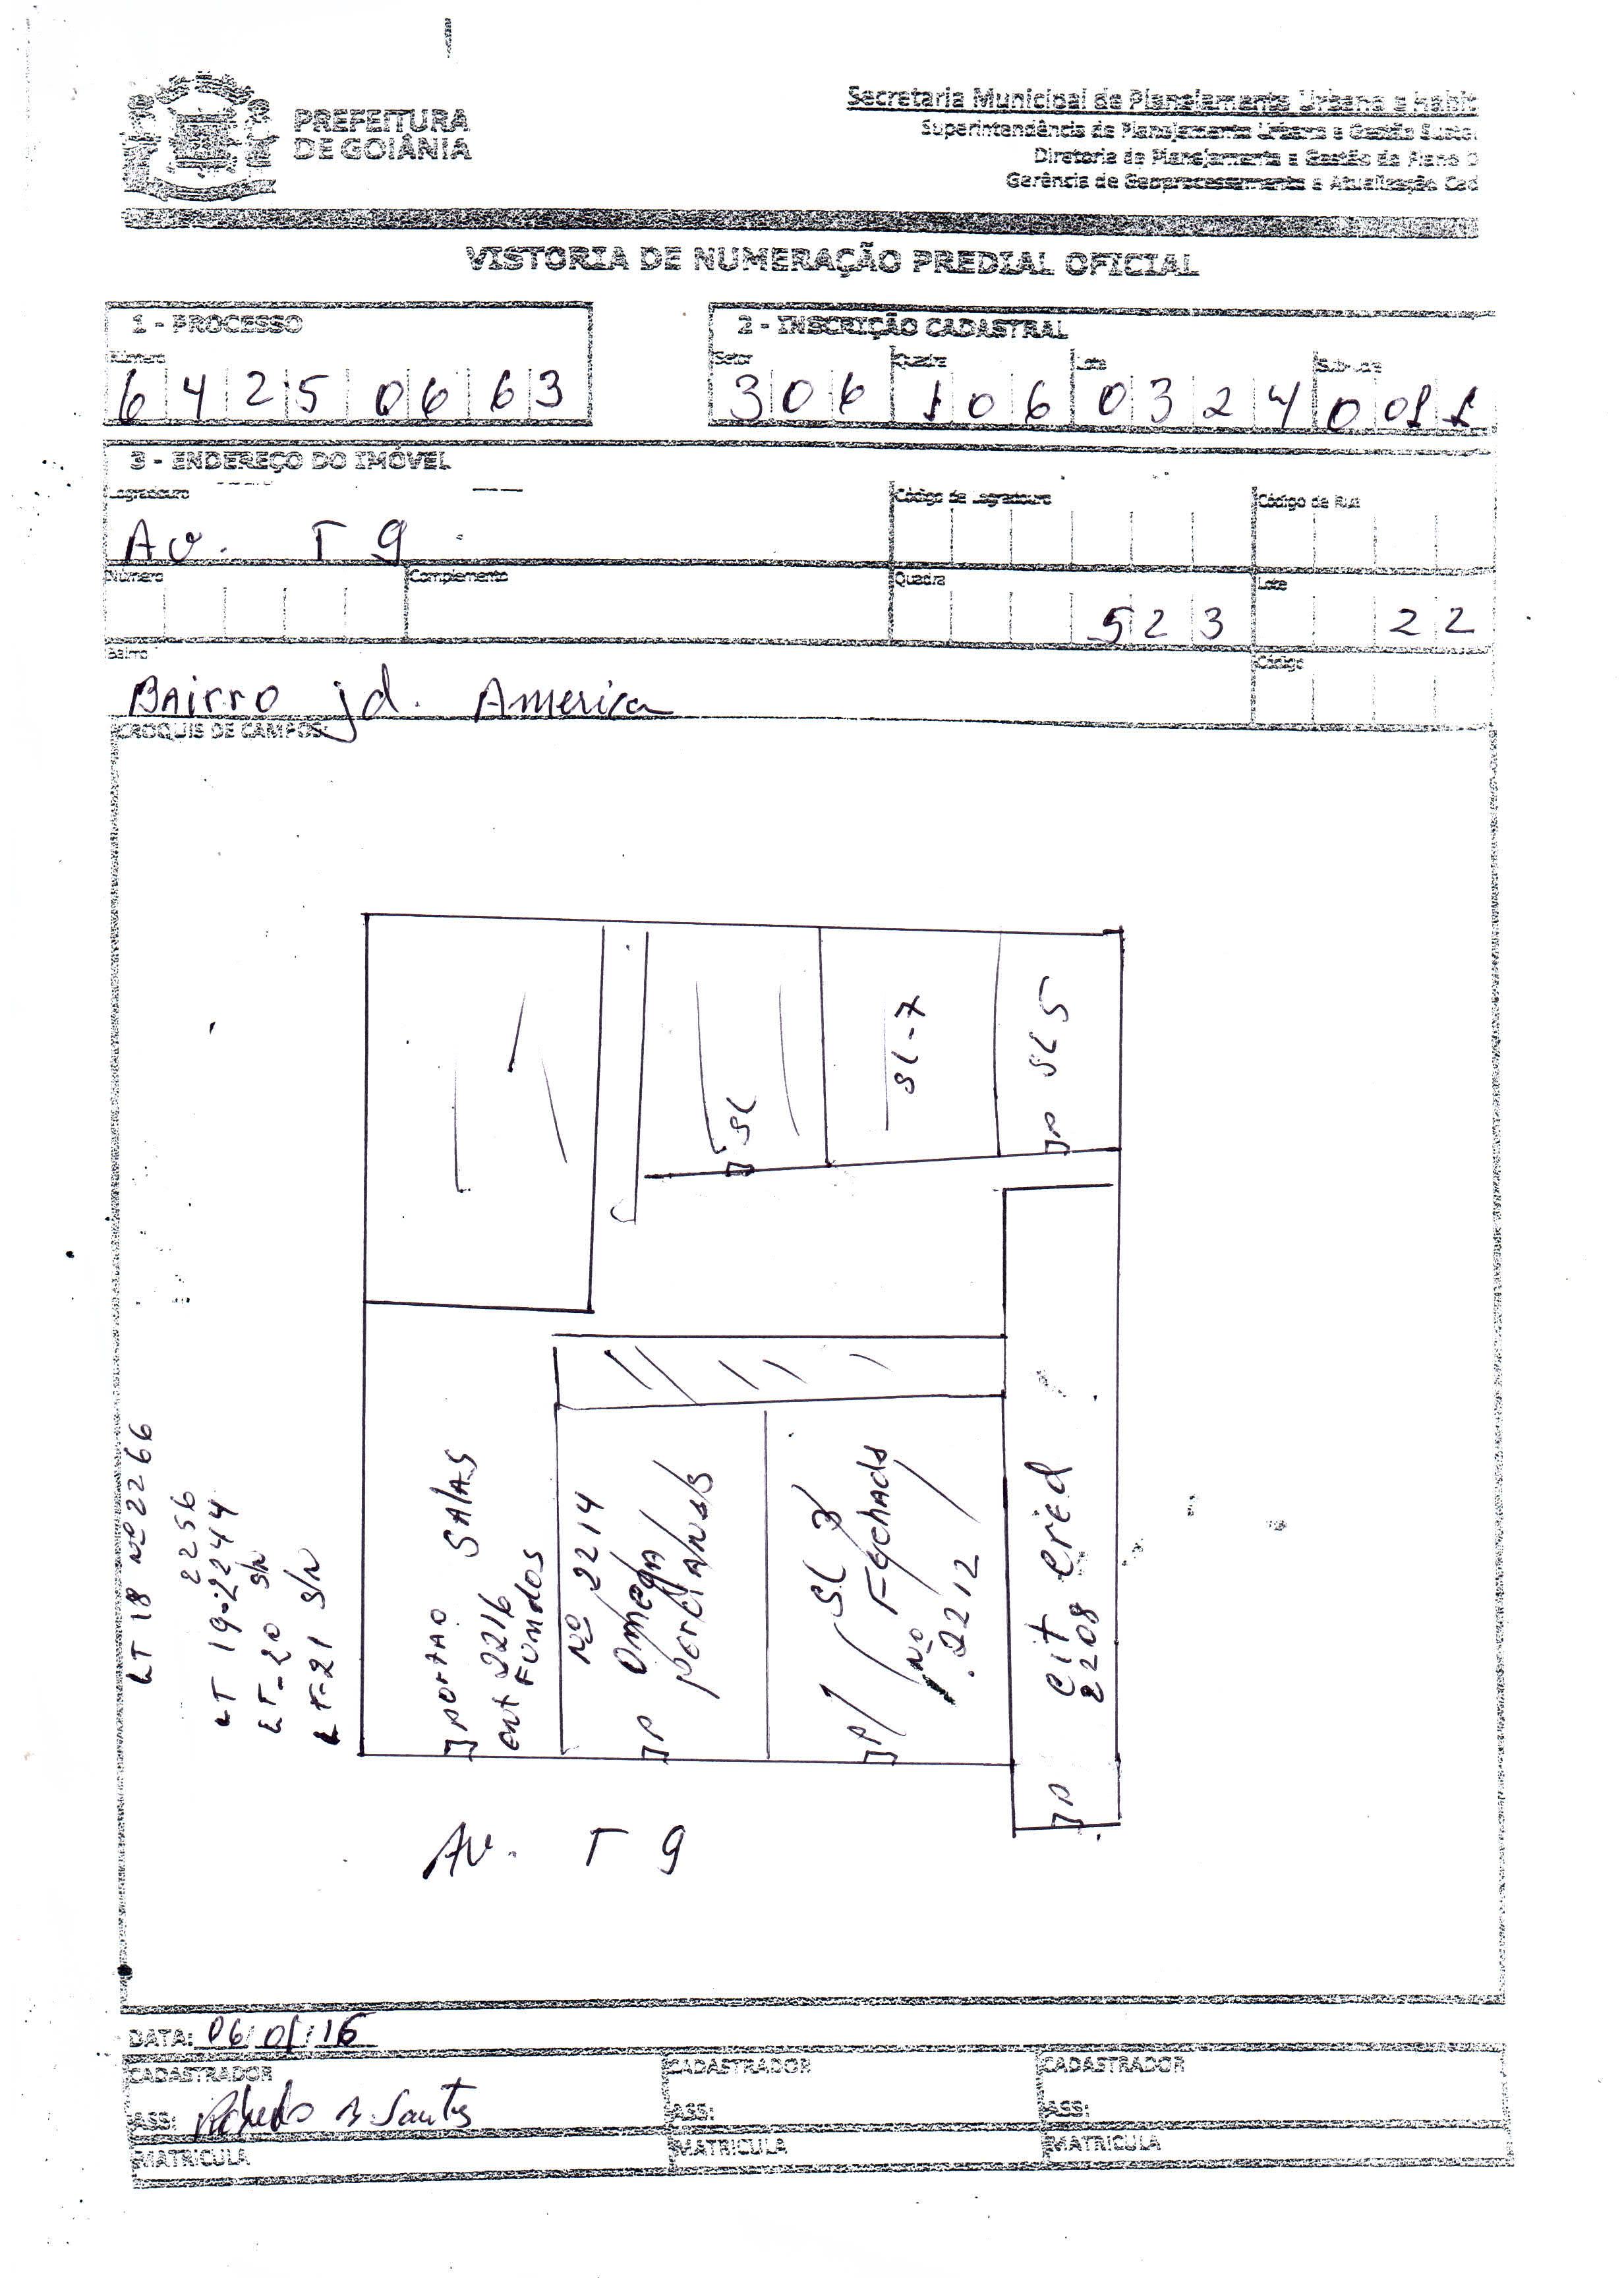 PREFEITURA
DE GOIÂNIA
Secretaria Municipal de Planejamento Urbano e Habit
Superintendência de Planejamento Urbano e Gestão Suste
Diretoria de Planejamento e Gestão do Plano D
Gerência de Geoprocessamento e Atualização Cad
VISTORIA DE NUMERAÇÃO PREDIAL OFICIAL
1 - PROCESSO
Número
6 4 2 5 0 6 6 3
2 - INSCRIÇÃO CADASTRAL
Setor Quadra Lote Sub-Lote
3 0 6 1 0 6 0 3 2 4 0 0 1 1
3 - ENDEREÇO DO IMÓVEL
Logradouro Código de Logradouro Código de Rua
Av. T 9
Número Complemento Quadra Lote
5 2 3 2 2
Bairro Código
BAirro jd. America
CROQUIS DE CAMPOS:
SL
SL-7
SL 5
P
LT 18 Nº 2266
2256
LT 19-2244
LT-20 S/N
LT-21 S/N
PORTAO SALAS
ent 2216
FUNDOS
Nº 2214
Omega
persianas
P
SL
Fechada
Nº
2212
P
Cit Cred
2208
P
Av. T 9
DATA: 06/01/16
CADASTRADOR CADASTRADOR CADASTRADOR
ASS: Santos ASS: ASS:
MATRICULA MATRICULA MATRICULA